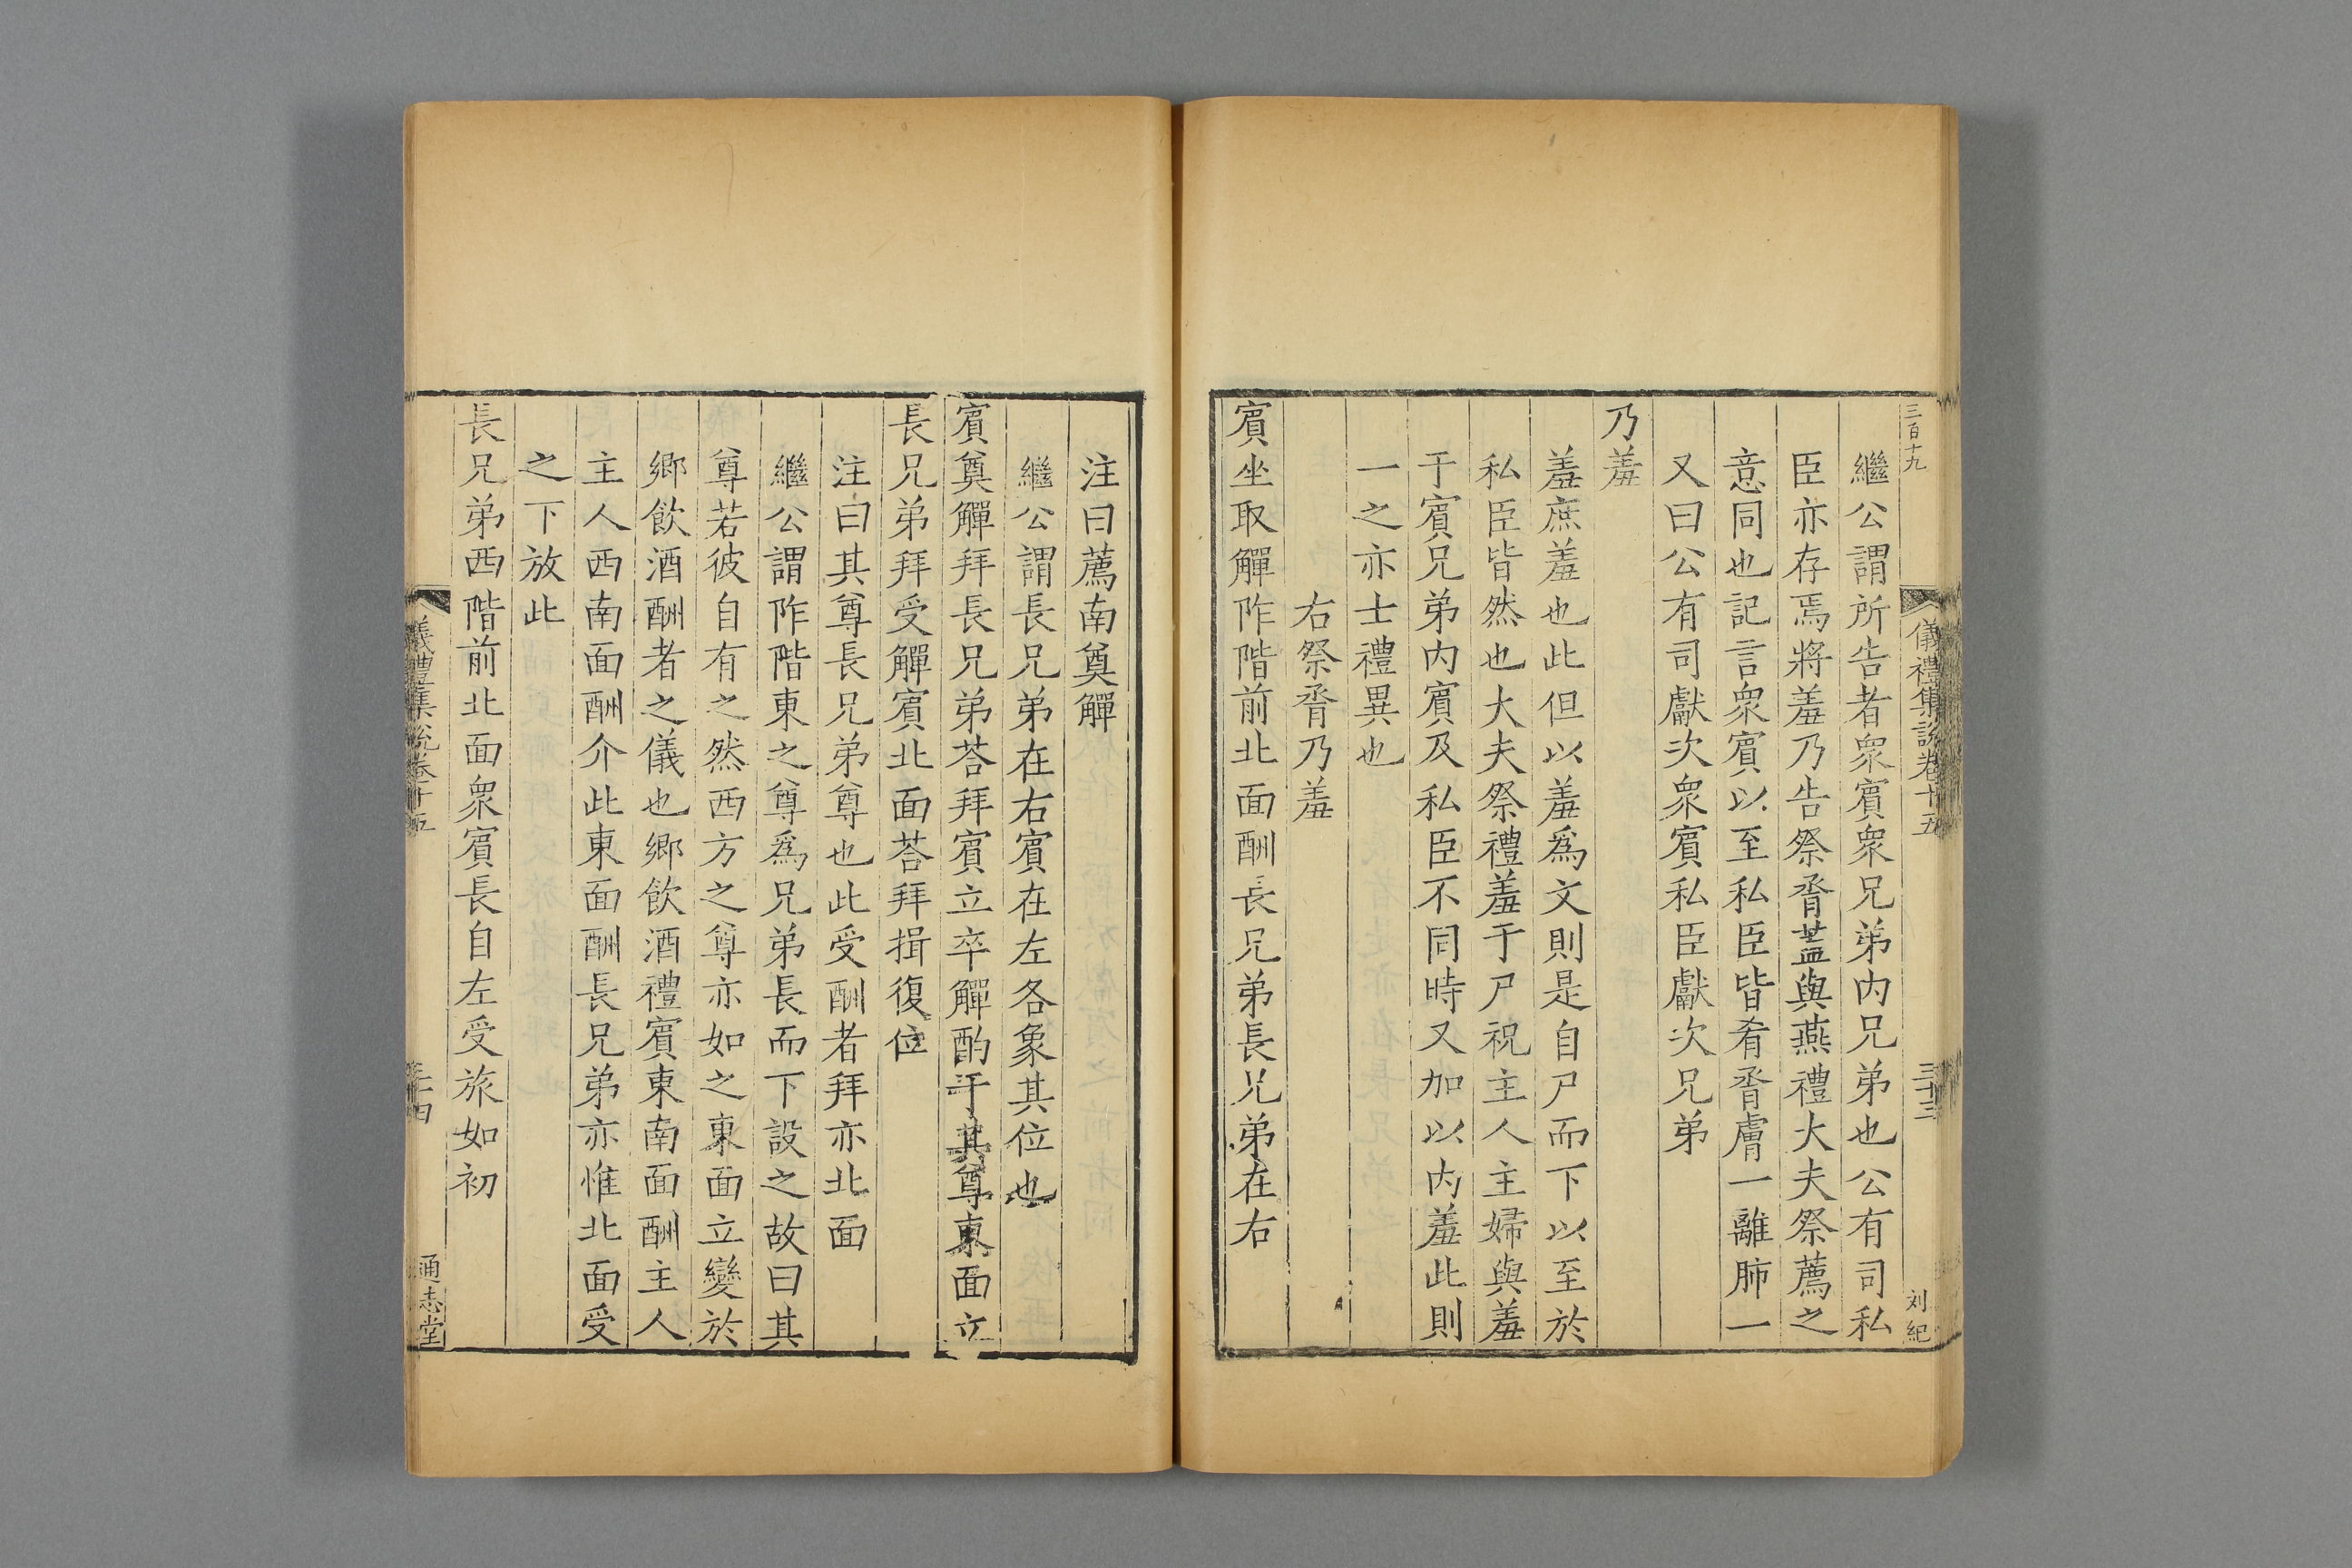 三百十九
儀禮集說卷十五
三十三
刘紀
繼公謂所告者衆賓衆兄弟内兄弟也公有司私
臣亦存焉將羞乃告祭脀葢與燕禮大夫祭薦之
意同也記言衆賓以至私臣皆肴脀膚一離肺一
又曰公有司獻次衆賓私臣獻次兄弟
乃羞
羞庶羞也此但以羞爲文則是自尸而下以至於
私臣皆然也大夫祭禮羞于尸祝主人主婦與羞
于賓兄弟内賓及私臣不同時又加以内羞此則
一之亦士禮異也
右祭脀乃羞
賓坐取觶阼階前北面酬長兄弟長兄弟在右
注曰薦南奠觶
繼公謂長兄弟在右賓在左各象其位也
賓奠觶拜長兄弟荅拜賓立卒觶酌于其尊東面立
長兄弟拜受觶賓北面荅拜揖復位
注曰其尊長兄弟尊也此受酬者拜亦北面
繼公謂阼階東之尊爲兄弟長而下設之故曰其
尊若彼自有之然西方之尊亦如之東面立變於
鄉飲酒酬者之儀也鄉飲酒禮賓東南面酬主人
主人西南面酬介此東面酬長兄弟亦惟北面受
之下放此
長兄弟西階前北面衆賓長自左受旅如初
儀禮集說卷十五
三十四
通志堂